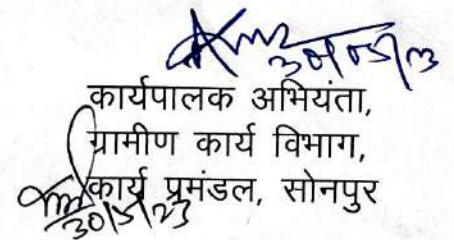 30/05/23
कार्यपालक अभियंता,
ग्रामीण कार्य विभाग,
कार्य प्रमंडल, सोनपुर
30/5/23